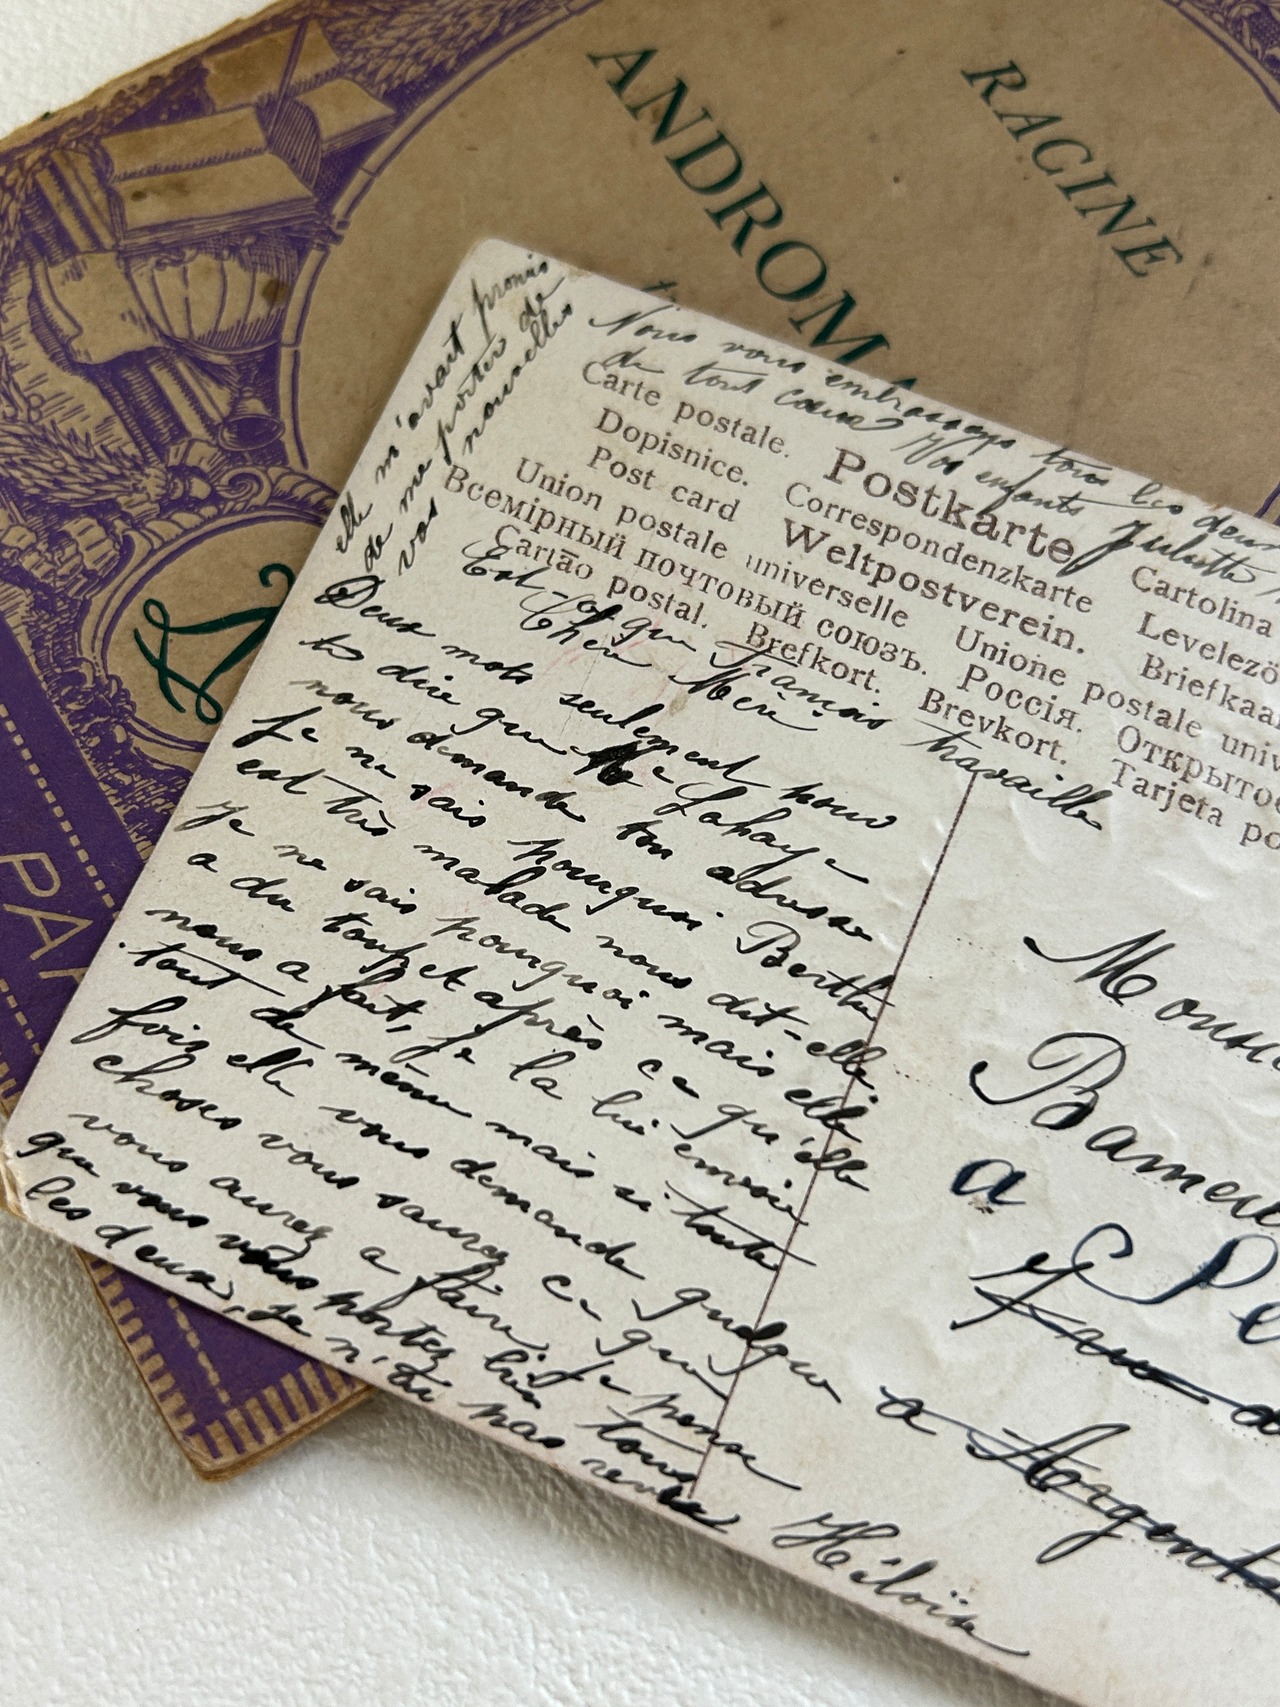 RACINE
ANDROMA
PA
Nous vous embrassons tous les deux
de tout cœur Vos enfants Juliette
elle m'avait promis
de me porter de
vos nouvelles
Carte postale.
Dopisnice.
Post card
Union postale universelle
Всемірный почтовый союзъ.
Cartão postal.
Postkarte
Correspondenzkarte
Weltpostverein.
Unione postale univ
Россія.
Brefkort.
Brevkort.
Cartolina
Levelező
Briefkaar
Открыто
Tarjeta po
Est-ce que François travaille
Chère Mère
Deux mots seulement pour
te dire que Me Lahaye
nous demande ton adresse
Je ne sais pourquoi. Berthe
est très malade nous dit-elle
je ne sais pourquoi mais elle
a du toupet après ce qu'elle
nous a fait, je la lui envoie
tout de même mais si toute
fois elle vous demande quelque
choses vous saurez ce que
vous aurez a faire, je pense
que vous vous portez bien tous
les deux, je n'ai pas revu
Héloïse
Monsie
Bameu
a
a Argenta